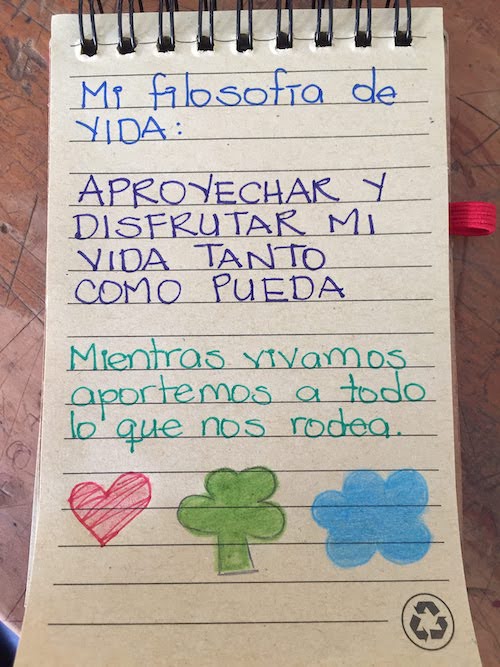 Mi filosofía de
VIDA:
APROVECHAR Y
DISFRUTAR MI
VIDA TANTO
COMO PUEDA
Mientras vivamos
aportemos a todo
lo que nos rodea.